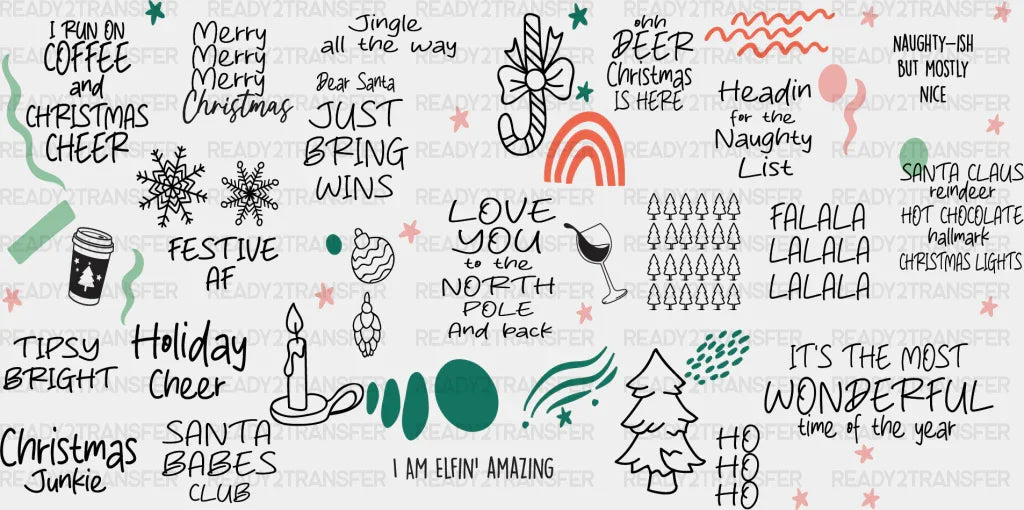 I RUN ON
COFFEE
and
CHRISTMAS
CHEER
Merry
Merry
Merry
Christmas
Jingle
all the way
Dear Santa
JUST
BRING
WINS
ohh
DEER
Christmas
IS HERE
Headin
for the
Naughty
List
NAUGHTY-ISH
BUT MOSTLY
NICE
SANTA CLAUS
reindeer
HOT CHOCOLATE
hallmark
CHRISTMAS LIGHTS
FESTIVE
AF
LOVE
YOU
to the
NORTH
POLE
And back
FALALA
LALALA
LALALA
TIPSY
BRIGHT
Holiday
Cheer
IT'S THE MOST
WONDERFUL
time of the year
Christmas
Junkie
SANTA
BABES
CLUB
I AM ELFIN' AMAZING
HO
HO
HO
READY2TRANSFER